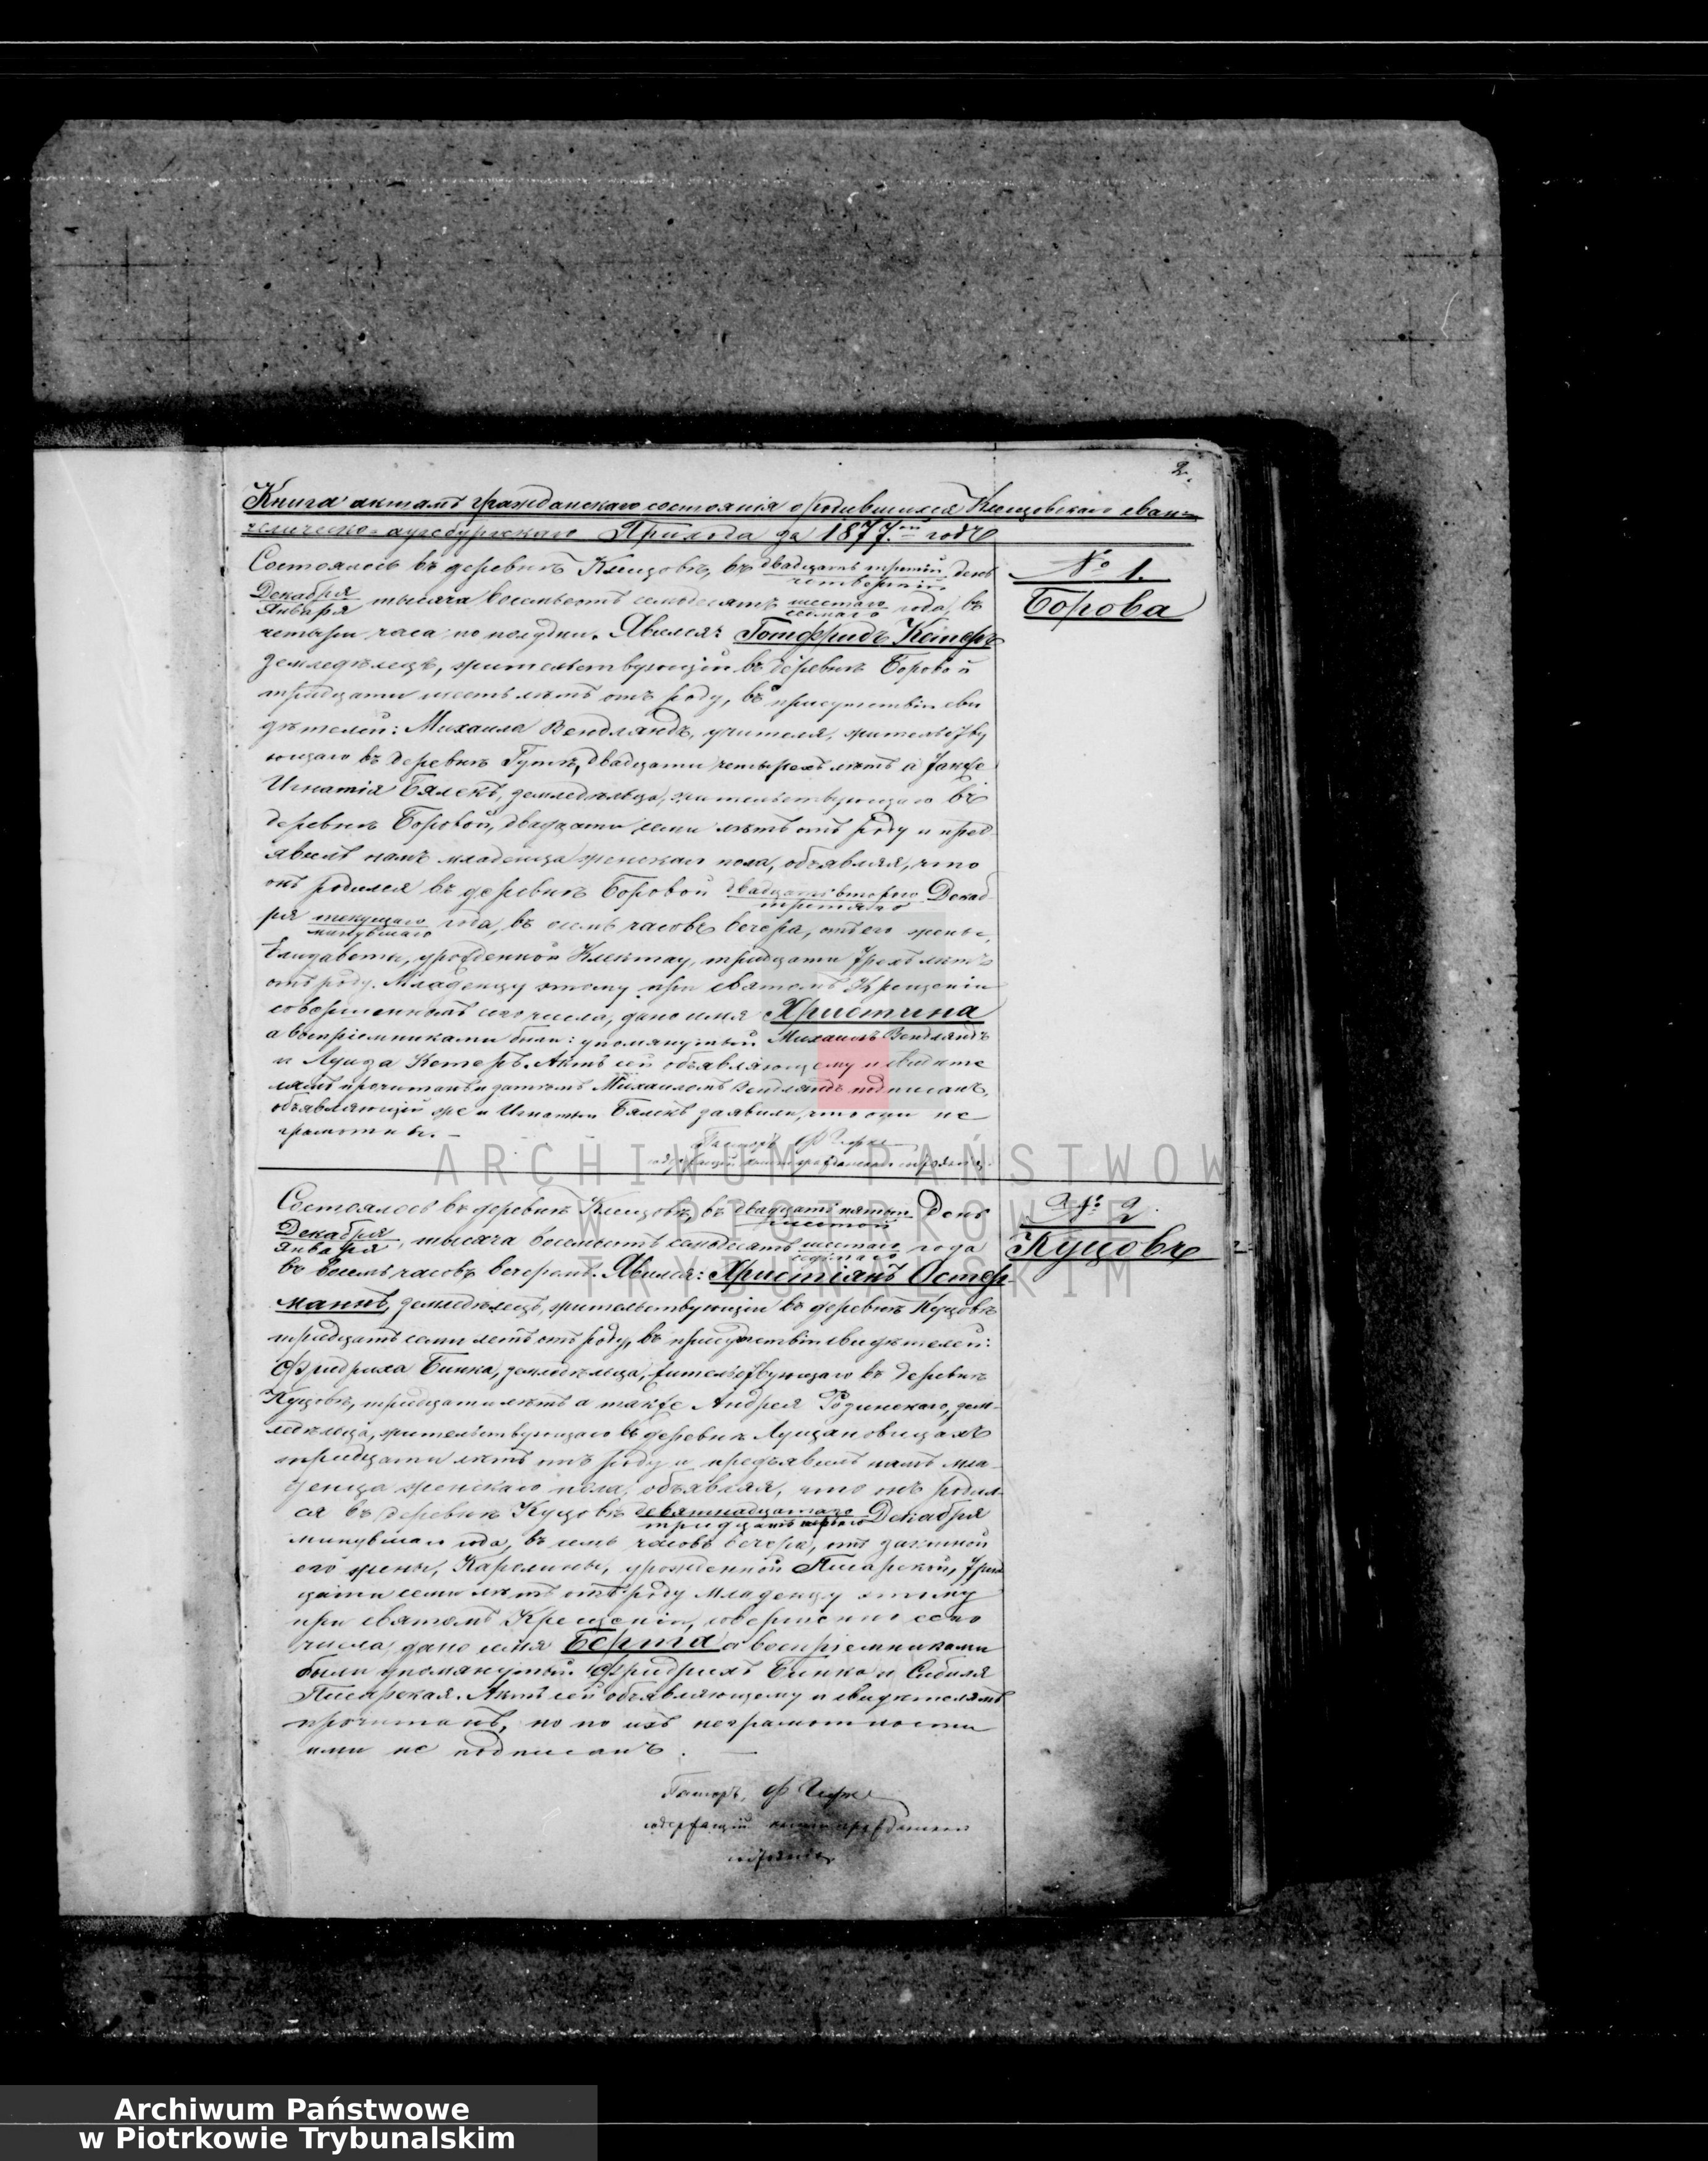 2.
Книга актамъ гражданскаго состоянія о родившихся Клещовскаго еван-
гелическо-аугсбургскаго Прихода за 1877ый годъ
№ 1.
Борова
Состоялось въ деревнѣ Клещовѣ, въ двадцать третій день
четвертый
Декабря тысяча восемьсотъ семьдесятъ шестаго года, въ
Января седмаго
четыри часа по полудни. Явился: Готфридъ Кетеръ
земледѣлецъ, жительствующій въ деревнѣ Боровой
тридцати шесть лѣтъ отъ роду, въ присутствіи сви
дѣтелей: Михаила Вендландъ, учителя, жительству
ющаго въ деревнѣ Гутѣ, двадцати четырехъ лѣтъ а также
Игнатія Бялекъ, земледѣльца, жительствующаго въ
деревнѣ Боровой, двадцати семи лѣтъ отъ роду и пред-
явилъ намъ младенца женскаго пола, объявляя, что
онъ родился въ деревнѣ Боровой двадцать втораго Декаб
третяго
ря текущаго года, въ семь часовъ вечера, отъ его жены,
минувшаго
Елизаветы, урожденной Клентау, тридцати трехъ лѣтъ
отъ роду. Младенцу этому при святомъ Крещеніи
совершенномъ сего числа, дано имя Христина
а воспріемниками были: упомянутый Михаилъ Вендландъ
и Луиза Кетеръ. Актъ сей объявляющему и свидѣте
лямъ прочитанъ и затѣмъ Михаиломъ Вендландъ подписанъ,
объявляющій же и Игнатій Бялекъ заявили, что они не
грамотны. —
Пасторъ Ф
содержащій акты гражданскаго состоянія
№ 2
Куцовъ
Состоялось въ деревнѣ Клещовѣ, въ двадцать пятый день
шестой
Декабря, тысяча восемьсотъ семьдесятъ шестаго года
Января седмаго
въ восемь часовъ вечеромъ. Явился: Христіянъ Остер-
манъ, земледѣлецъ, жительствующій въ деревнѣ Куцовѣ
тридцать семи летъ отъ роду, въ присутствіи свидѣтелей:
Фридриха Бинка, земледѣльца, жительствующаго въ деревнѣ
Куцовѣ, тридцати лѣтъ а также Андрея Родинскаго, зем-
ледѣльца, жительствующаго въ деревнѣ Лущановицахъ
тридцати лѣтъ отъ роду и предъявилъ намъ мла-
денца женскаго пола, объявляя, что онъ родил-
ся въ деревнѣ Куцовѣ девятнадцатаго Декабря
тридцать перваго
минувшаго года, въ семь часовъ вечера, отъ законной
его жены, Каролины, урожденной Писарской, трид
цати семи лѣтъ отъ роду Младенцу этому
при святомъ Крещеніи, совершенно сего
числа, дано имя Берта а воспріемниками
были упомянутый Фридрихъ Бинка и Сибиля
Писарская. Актъ сей объявляющему и свидѣтелямъ
прочитанъ, но по ихъ неграмотности
ими не подписанъ. —
Пасторъ, Ф
содержащій акты гражданскаго
состоянія
ARCHIWUM PAŃSTWOWE
W PIOTRKOWIE
TRYBUNALSKIM
Archiwum Państwowe
w Piotrkowie Trybunalskim